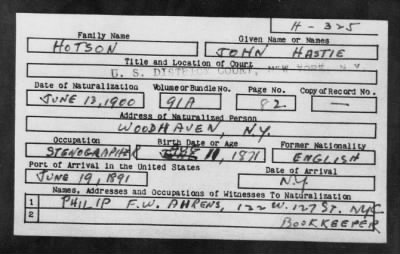 H-325
Family Name Given Name or Names
HOTSON JOHN HASTIE
Title and Location of Court
U. S. DISTRICT COURT, NEW YORK, N.Y.
Date of Naturalization Volume or Bundle No. Page No. Copy of Record No.
JUNE 13, 1900 91A 82 —
Address of Naturalized Person
WOODHAVEN, N.Y.
Occupation Birth Date or Age Former Nationality
STENOGRAPHER 11, 1871 ENGLISH
Port of Arrival in the United States Date of Arrival
JUNE 19, 1891 N.Y.
Names, Addresses and Occupations of Witnesses To Naturalization
1 PHILIP F.W. AHRENS, 122 W. 127 ST. NYC
2 BOOKKEEPER